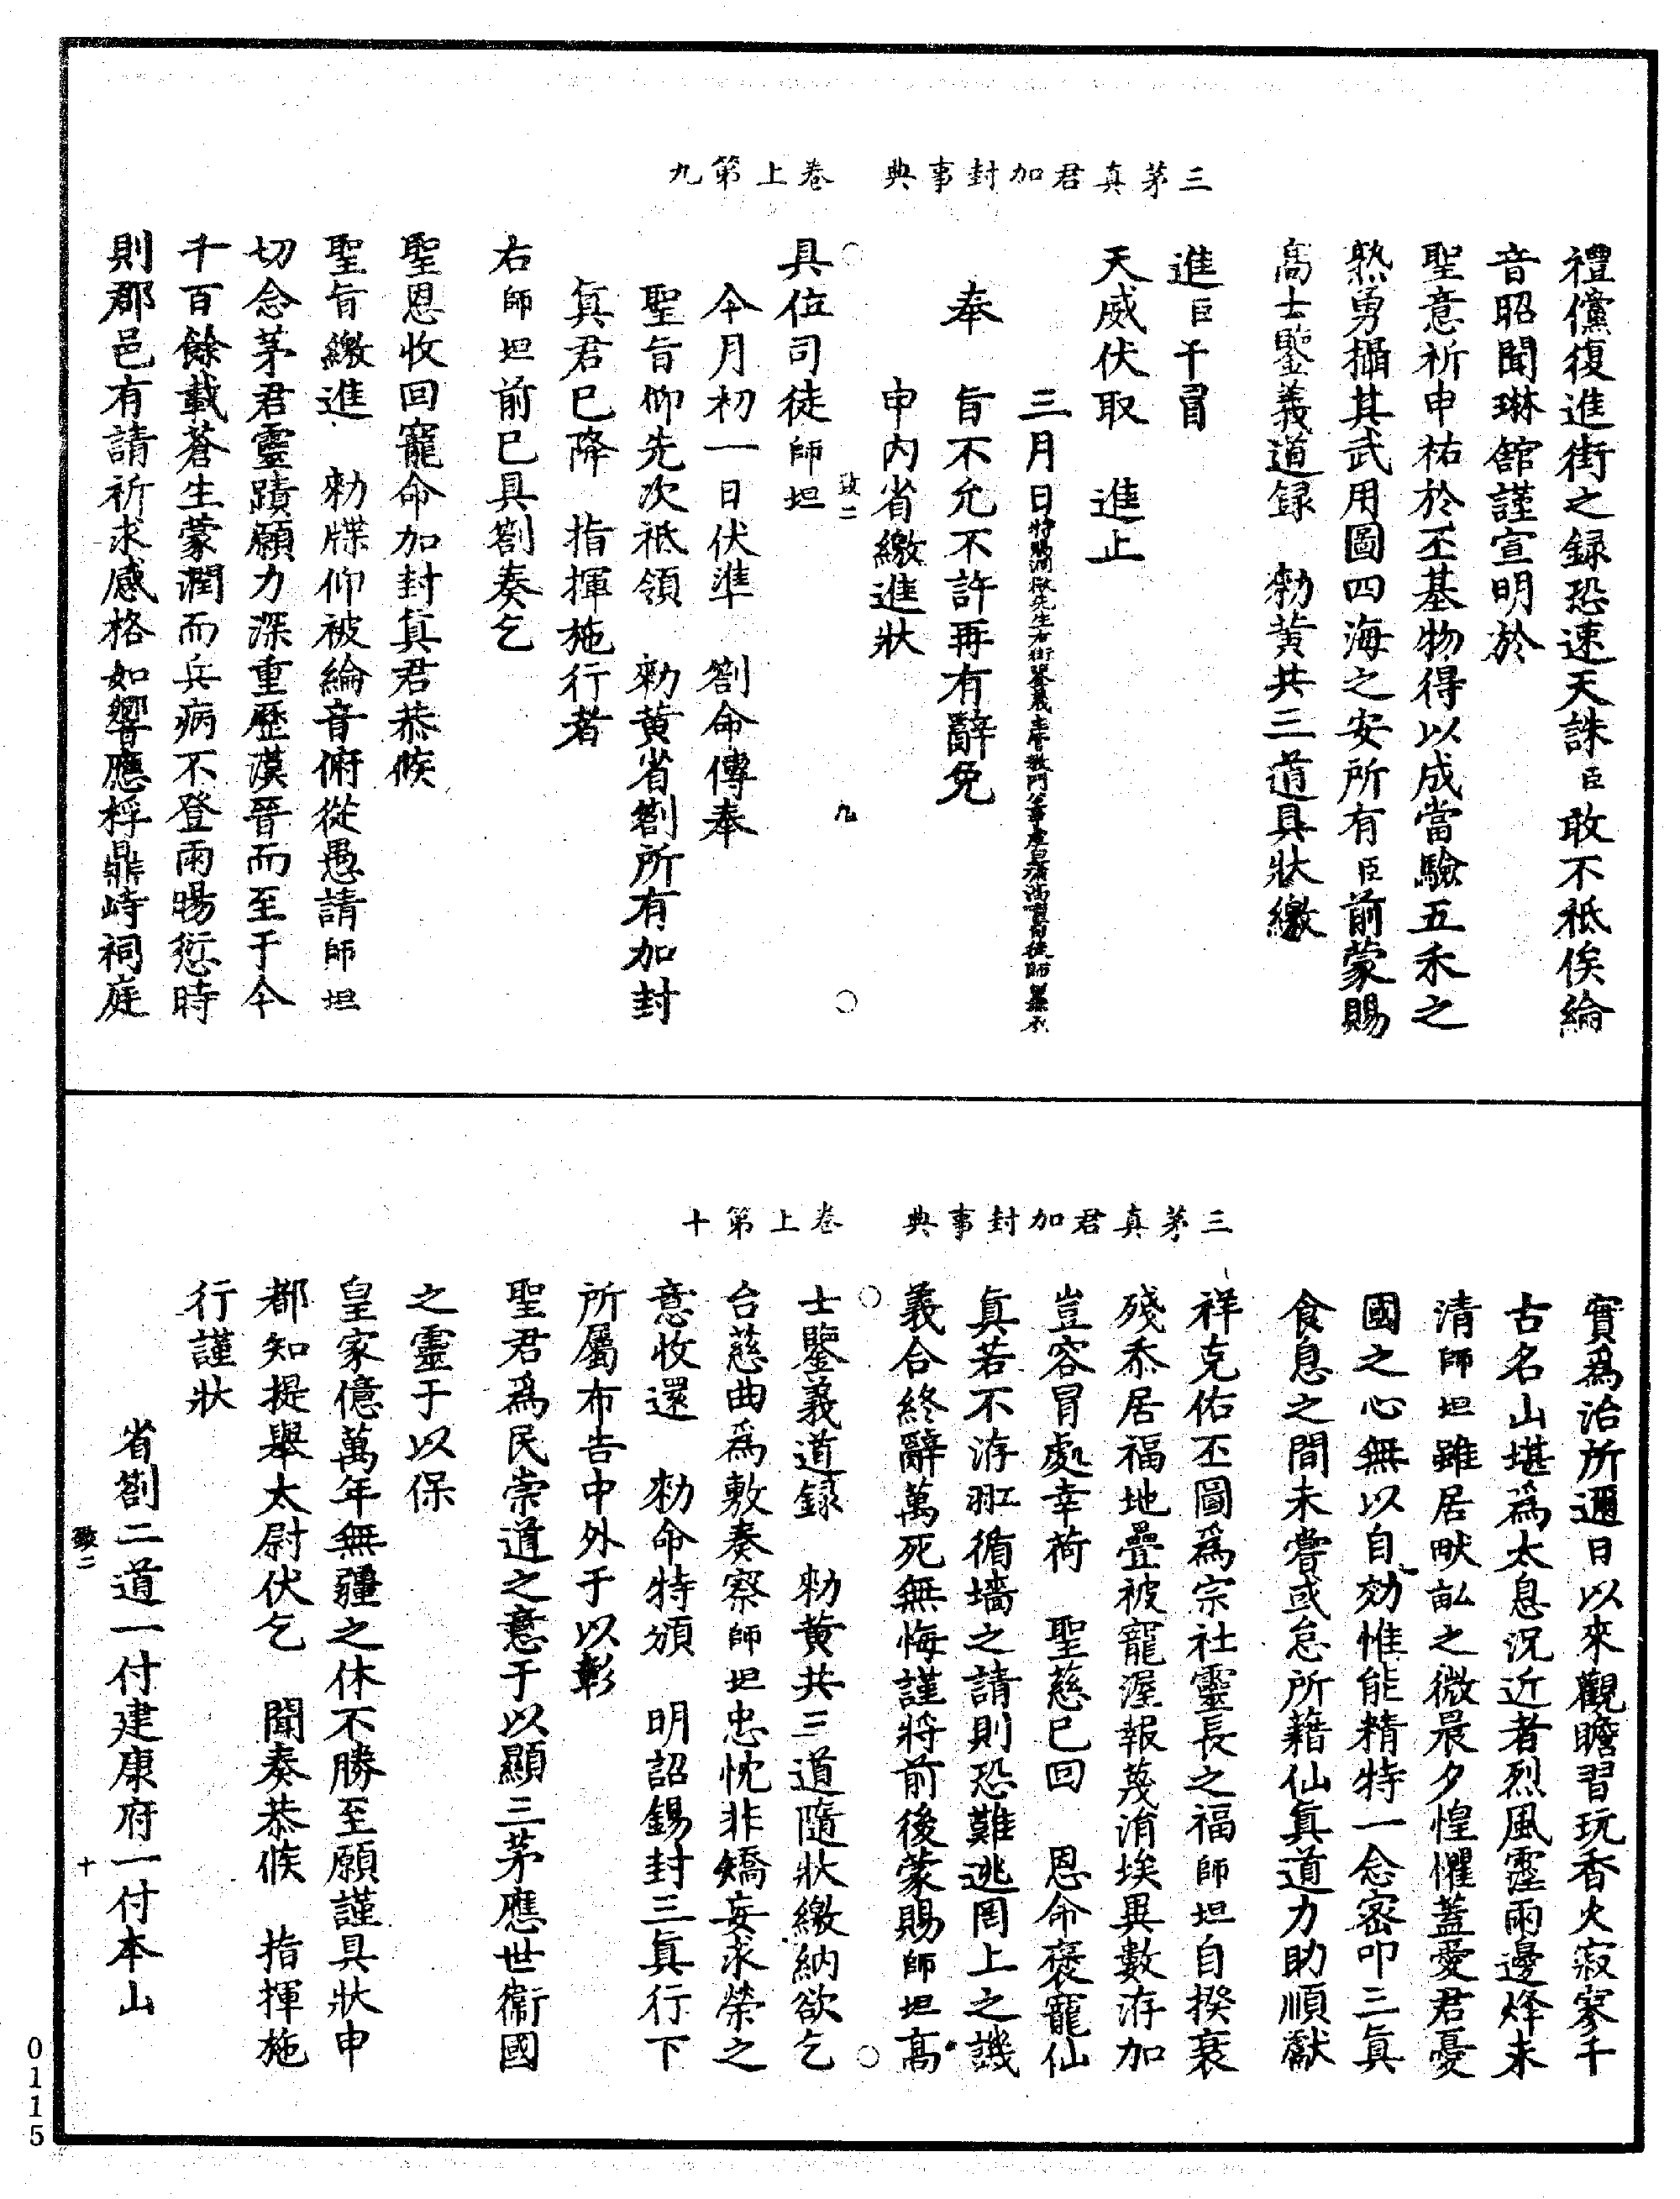 三茅真君加封事典　卷上第九
禮儻復進街之録恐速天誅臣敢不祗俟綸
音昭聞琳館謹宣明於
聖意祈申祐於丕基物得以成當驗五禾之
熟勇攝其武用圖四海之安所有臣前蒙賜
高士鑒義道録　勑黄共三道具狀繳
進臣干冒
天威伏取　進止
三月日特賜
奉　旨不允不許再有辭免
申内省繳進狀
致二　九
具位司徒師坦
今月初一日伏準　劄命傳奉
聖旨仰先次祗領　勑黄省劄所有加封
真君已降　指揮施行者
右師坦前已具劄奏乞
聖恩收回寵命加封真君恭候
聖旨繳進　勑牒仰被綸音俯從愚請師坦
切念茅君靈蹟願力深重歷漢晉而至于今
千百餘載蒼生蒙潤而兵病不登雨暘愆時
則郡邑有請祈求感格如響應桴鼎峙祠庭
三茅真君加封事典　卷上第十
實爲治所邇日以來觀瞻習玩香火寂寥千
古名山堪爲太息況近者烈風霪雨邊烽未
清師坦雖居畎畝之微晨夕惶懼蓋愛君憂
國之心無以自効惟能精特一念密叩三真
食息之間未嘗或怠所藉仙真道力助順獻
祥克佑丕圖爲宗社靈長之福師坦自揆衰
殘忝居福地疊被寵渥報蔑涓埃異數洊加
豈容冒處幸荷　聖慈已回　恩命褒寵仙
真若不洊瀝循墻之請則恐難逃罔上之譏
義合終辭萬死無悔謹將前後蒙賜師坦高
士鑒義道録　勑黄共三道隨狀繳納欲乞
台慈曲爲敷奏察師坦忠忱非矯妄求榮之
意收還　勑命特頒　明詔錫封三真行下
所屬布告中外于以彰
聖君爲民崇道之意于以顯三茅應世衛國
之靈于以保
皇家億萬年無疆之休不勝至願謹具狀申
都知提舉太尉伏乞　聞奏恭候　指揮施
行謹狀
省劄二道一付建康府一付本山
致二　十
0115